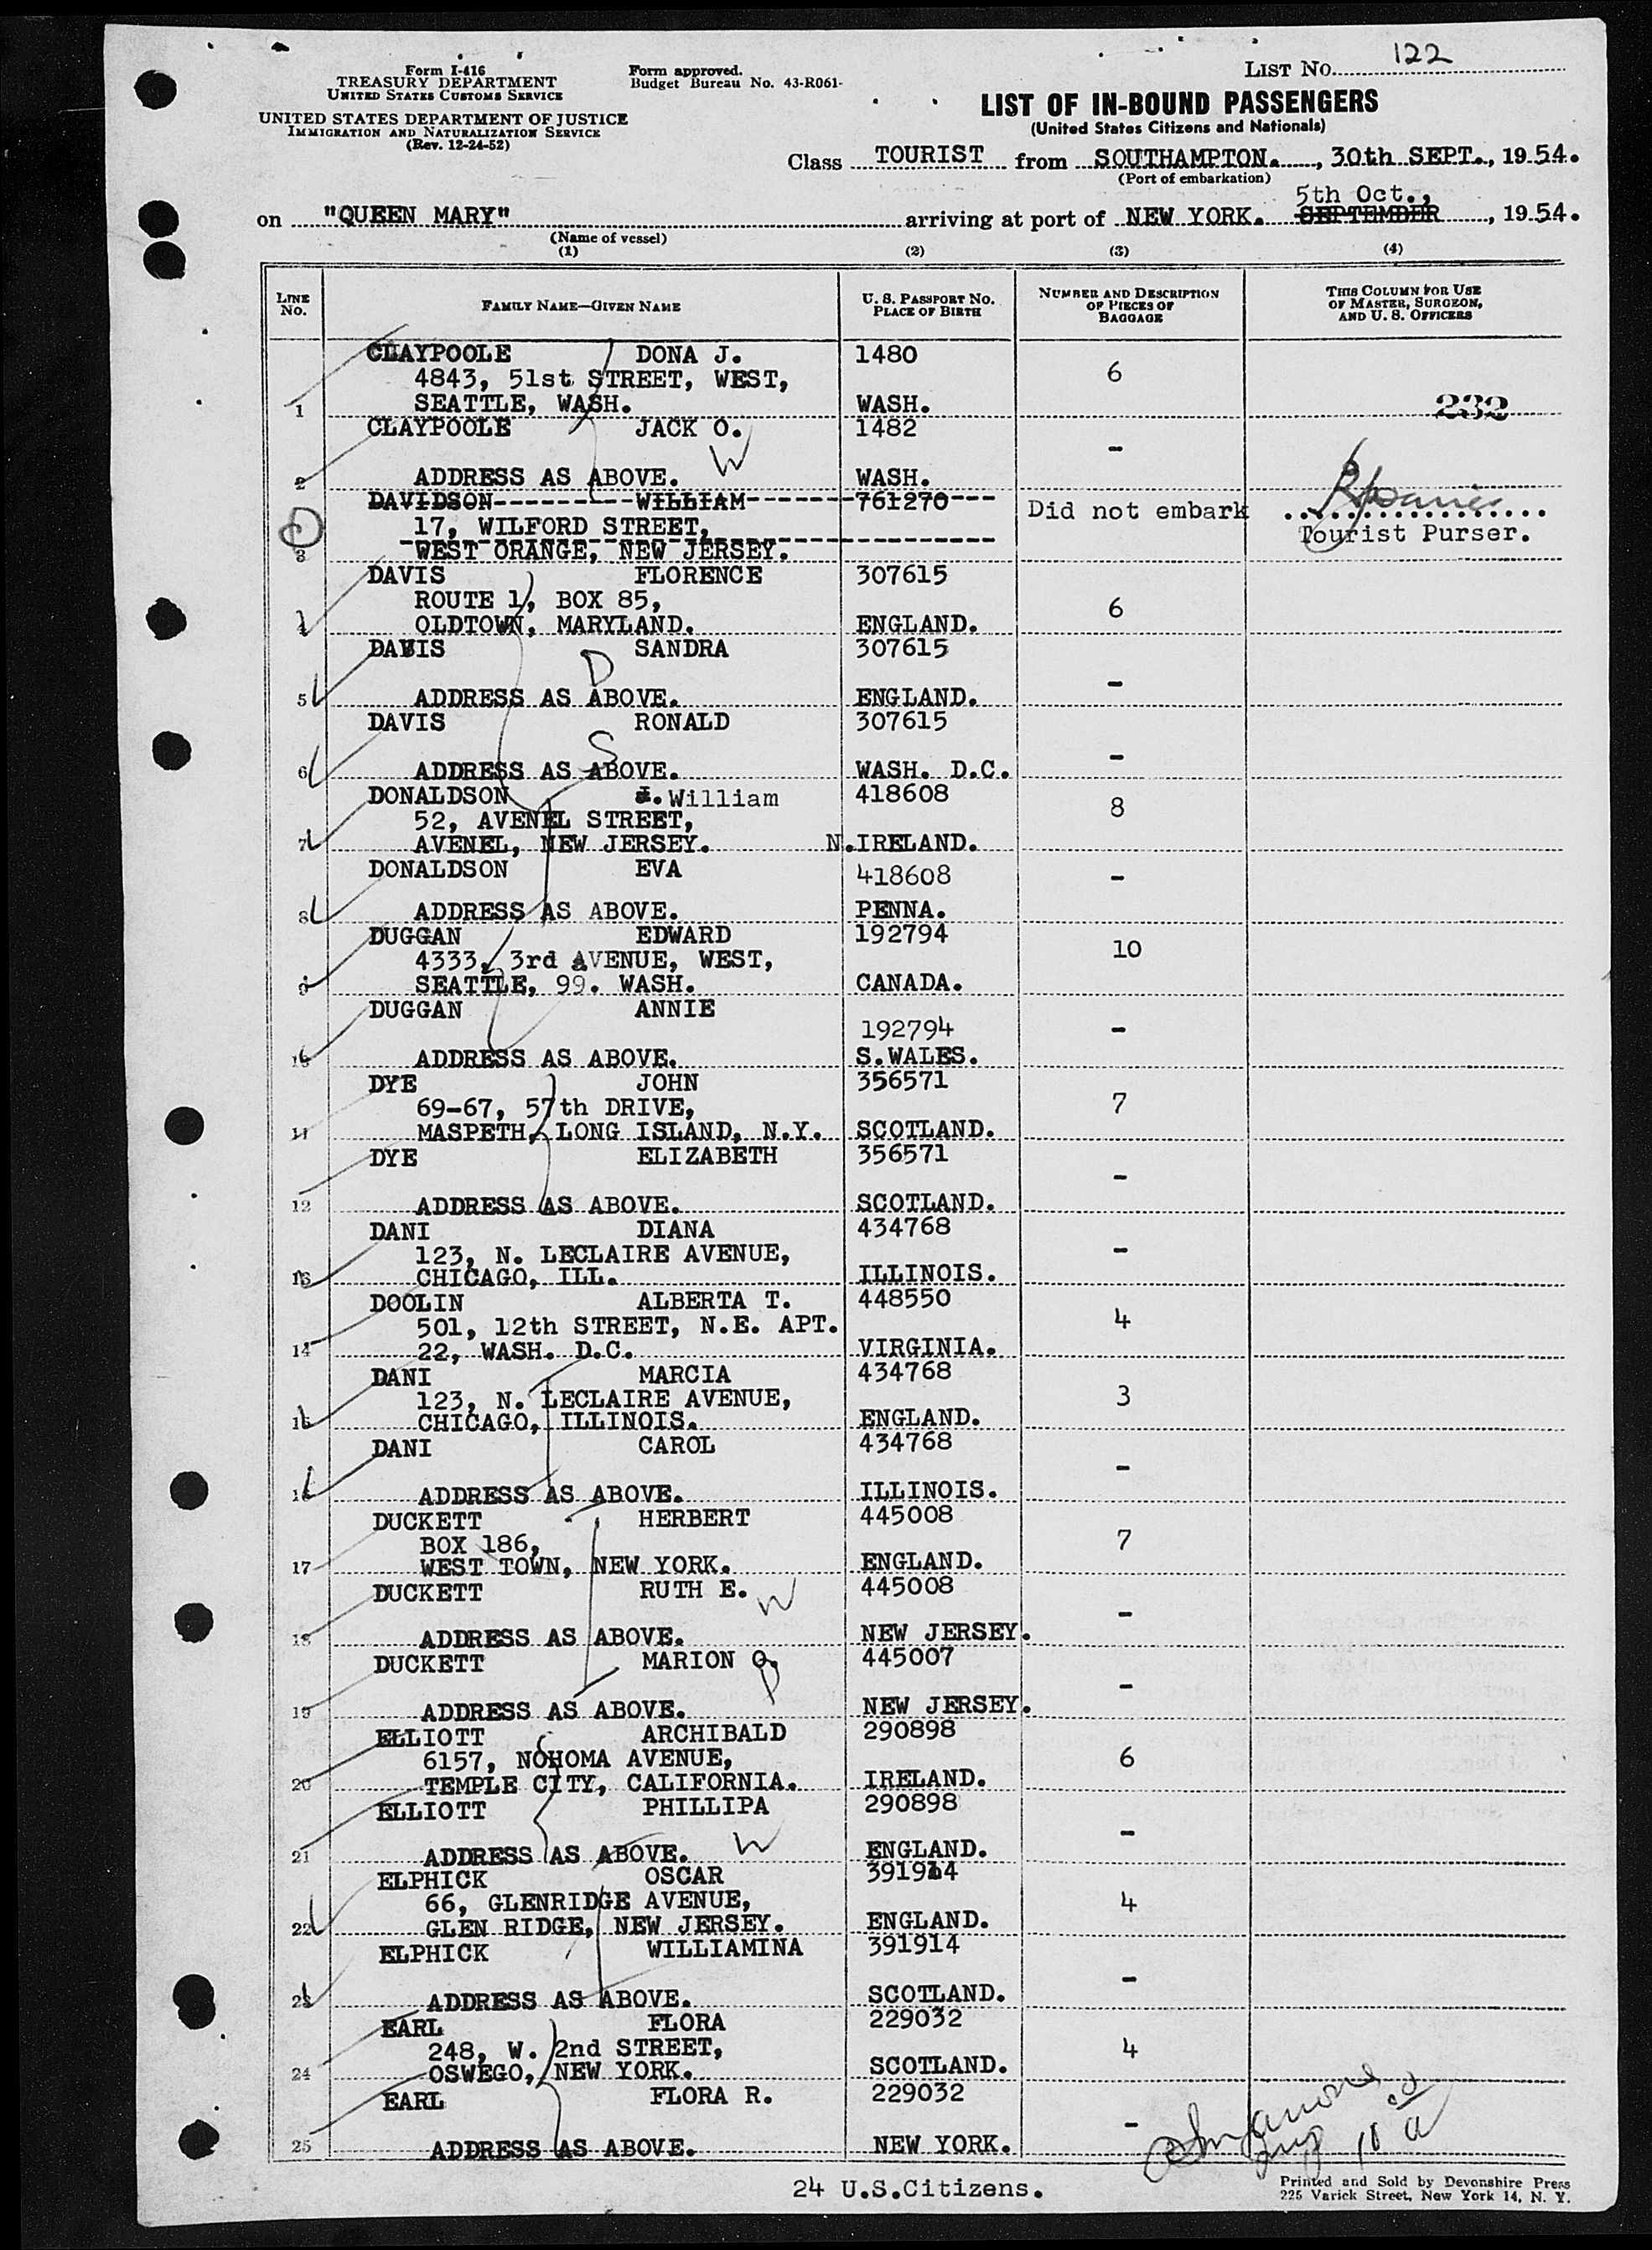 Form I-416
TREASURY DEPARTMENT
UNITED STATES CUSTOMS SERVICE
UNITED STATES DEPARTMENT OF JUSTICE
IMMIGRATION AND NATURALIZATION SERVICE
(Rev. 12-24-52)
Form approved.
Budget Bureau No. 43-R061-
LIST No. 122
LIST OF IN-BOUND PASSENGERS
(United States Citizens and Nationals)
Class TOURIST from SOUTHAMPTON., 30th SEPT., 1954.
(Port of embarkation)
5th Oct.,
on "QUEEN MARY" arriving at port of NEW YORK. SEPTEMBER, 1954.
(Name of vessel)
(1) (2) (3) (4)
LINE No. FAMILY NAME—GIVEN NAME U. S. PASSPORT NO. PLACE OF BIRTH NUMBER AND DESCRIPTION OF PIECES OF BAGGAGE THIS COLUMN FOR USE OF MASTER, SURGEON, AND U. S. OFFICERS
CLAYPOOLE DONA J. 1480
4843, 51st STREET, WEST, 6
1 SEATTLE, WASH. WASH. 232
CLAYPOOLE JACK O. 1482
W -
2 ADDRESS AS ABOVE. WASH.
DAVIDSON WILLIAM 761270
D 17, WILFORD STREET, Did not embark
3 WEST ORANGE, NEW JERSEY. Tourist Purser.
DAVIS FLORENCE 307615
ROUTE 1, BOX 85, 6
4 OLDTOWN, MARYLAND. ENGLAND.
DAVIS SANDRA 307615
D -
5 ADDRESS AS ABOVE. ENGLAND.
DAVIS RONALD 307615
S -
6 ADDRESS AS ABOVE. WASH. D.C.
DONALDSON J. William 418608
52, AVENEL STREET, 8
7 AVENEL, NEW JERSEY. N.IRELAND.
DONALDSON EVA 418608 -
8 ADDRESS AS ABOVE. PENNA.
DUGGAN EDWARD 192794
4333, 3rd AVENUE, WEST, 10
9 SEATTLE, 99. WASH. CANADA.
DUGGAN ANNIE
192794 -
10 ADDRESS AS ABOVE. S.WALES.
DYE JOHN 356571
69-67, 57th DRIVE, 7
11 MASPETH, LONG ISLAND, N.Y. SCOTLAND.
DYE ELIZABETH 356571
-
12 ADDRESS AS ABOVE. SCOTLAND.
DANI DIANA 434768
123, N. LECLAIRE AVENUE, -
13 CHICAGO, ILL. ILLINOIS.
DOOLIN ALBERTA T. 448550
501, 12th STREET, N.E. APT. 4
14 22, WASH. D.C. VIRGINIA.
DANI MARCIA 434768
123, N. LECLAIRE AVENUE, 3
15 CHICAGO, ILLINOIS. ENGLAND.
DANI CAROL 434768
-
16 ADDRESS AS ABOVE. ILLINOIS.
DUCKETT HERBERT 445008
BOX 186, 7
17 WEST TOWN, NEW YORK. ENGLAND.
DUCKETT RUTH E. W 445008
-
18 ADDRESS AS ABOVE. NEW JERSEY.
DUCKETT MARION O. D 445007
-
19 ADDRESS AS ABOVE. NEW JERSEY.
ELLIOTT ARCHIBALD 290898
6157, NOHOMA AVENUE, 6
20 TEMPLE CITY, CALIFORNIA. IRELAND.
ELLIOTT PHILLIPA 290898
W -
21 ADDRESS AS ABOVE. ENGLAND.
ELPHICK OSCAR 391914
66, GLENRIDGE AVENUE, 4
22 GLEN RIDGE, NEW JERSEY. ENGLAND.
ELPHICK WILLIAMINA 391914
-
23 ADDRESS AS ABOVE. SCOTLAND.
EARL FLORA 229032
248, W. 2nd STREET, 4
24 OSWEGO, NEW YORK. SCOTLAND.
EARL FLORA R. 229032
-
25 ADDRESS AS ABOVE. NEW YORK.
24 U.S.Citizens.
Printed and Sold by Devonshire Press
225 Varick Street, New York 14, N. Y.